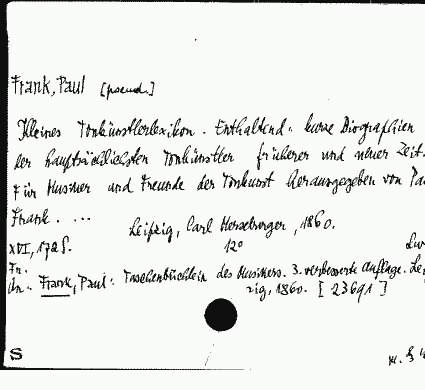 Frank, Paul [pseud.]
Kleines Tonkünstlerlexikon. Enthaltend: kurze Biographien
der hauptsächlichsten Tonkünstler früherer und neuer Zeit.
Für Musiker und Freunde der Tonkunst herausgegeben von Pa
Frank. ... Leipzig, Carl Merseburger, 1860.
XVI, 172 S. 12°
In: Frank, Paul: Taschenbüchlein des Musikers. 3. verbesserte Auflage. Le
zig, 1860. [23691]
S